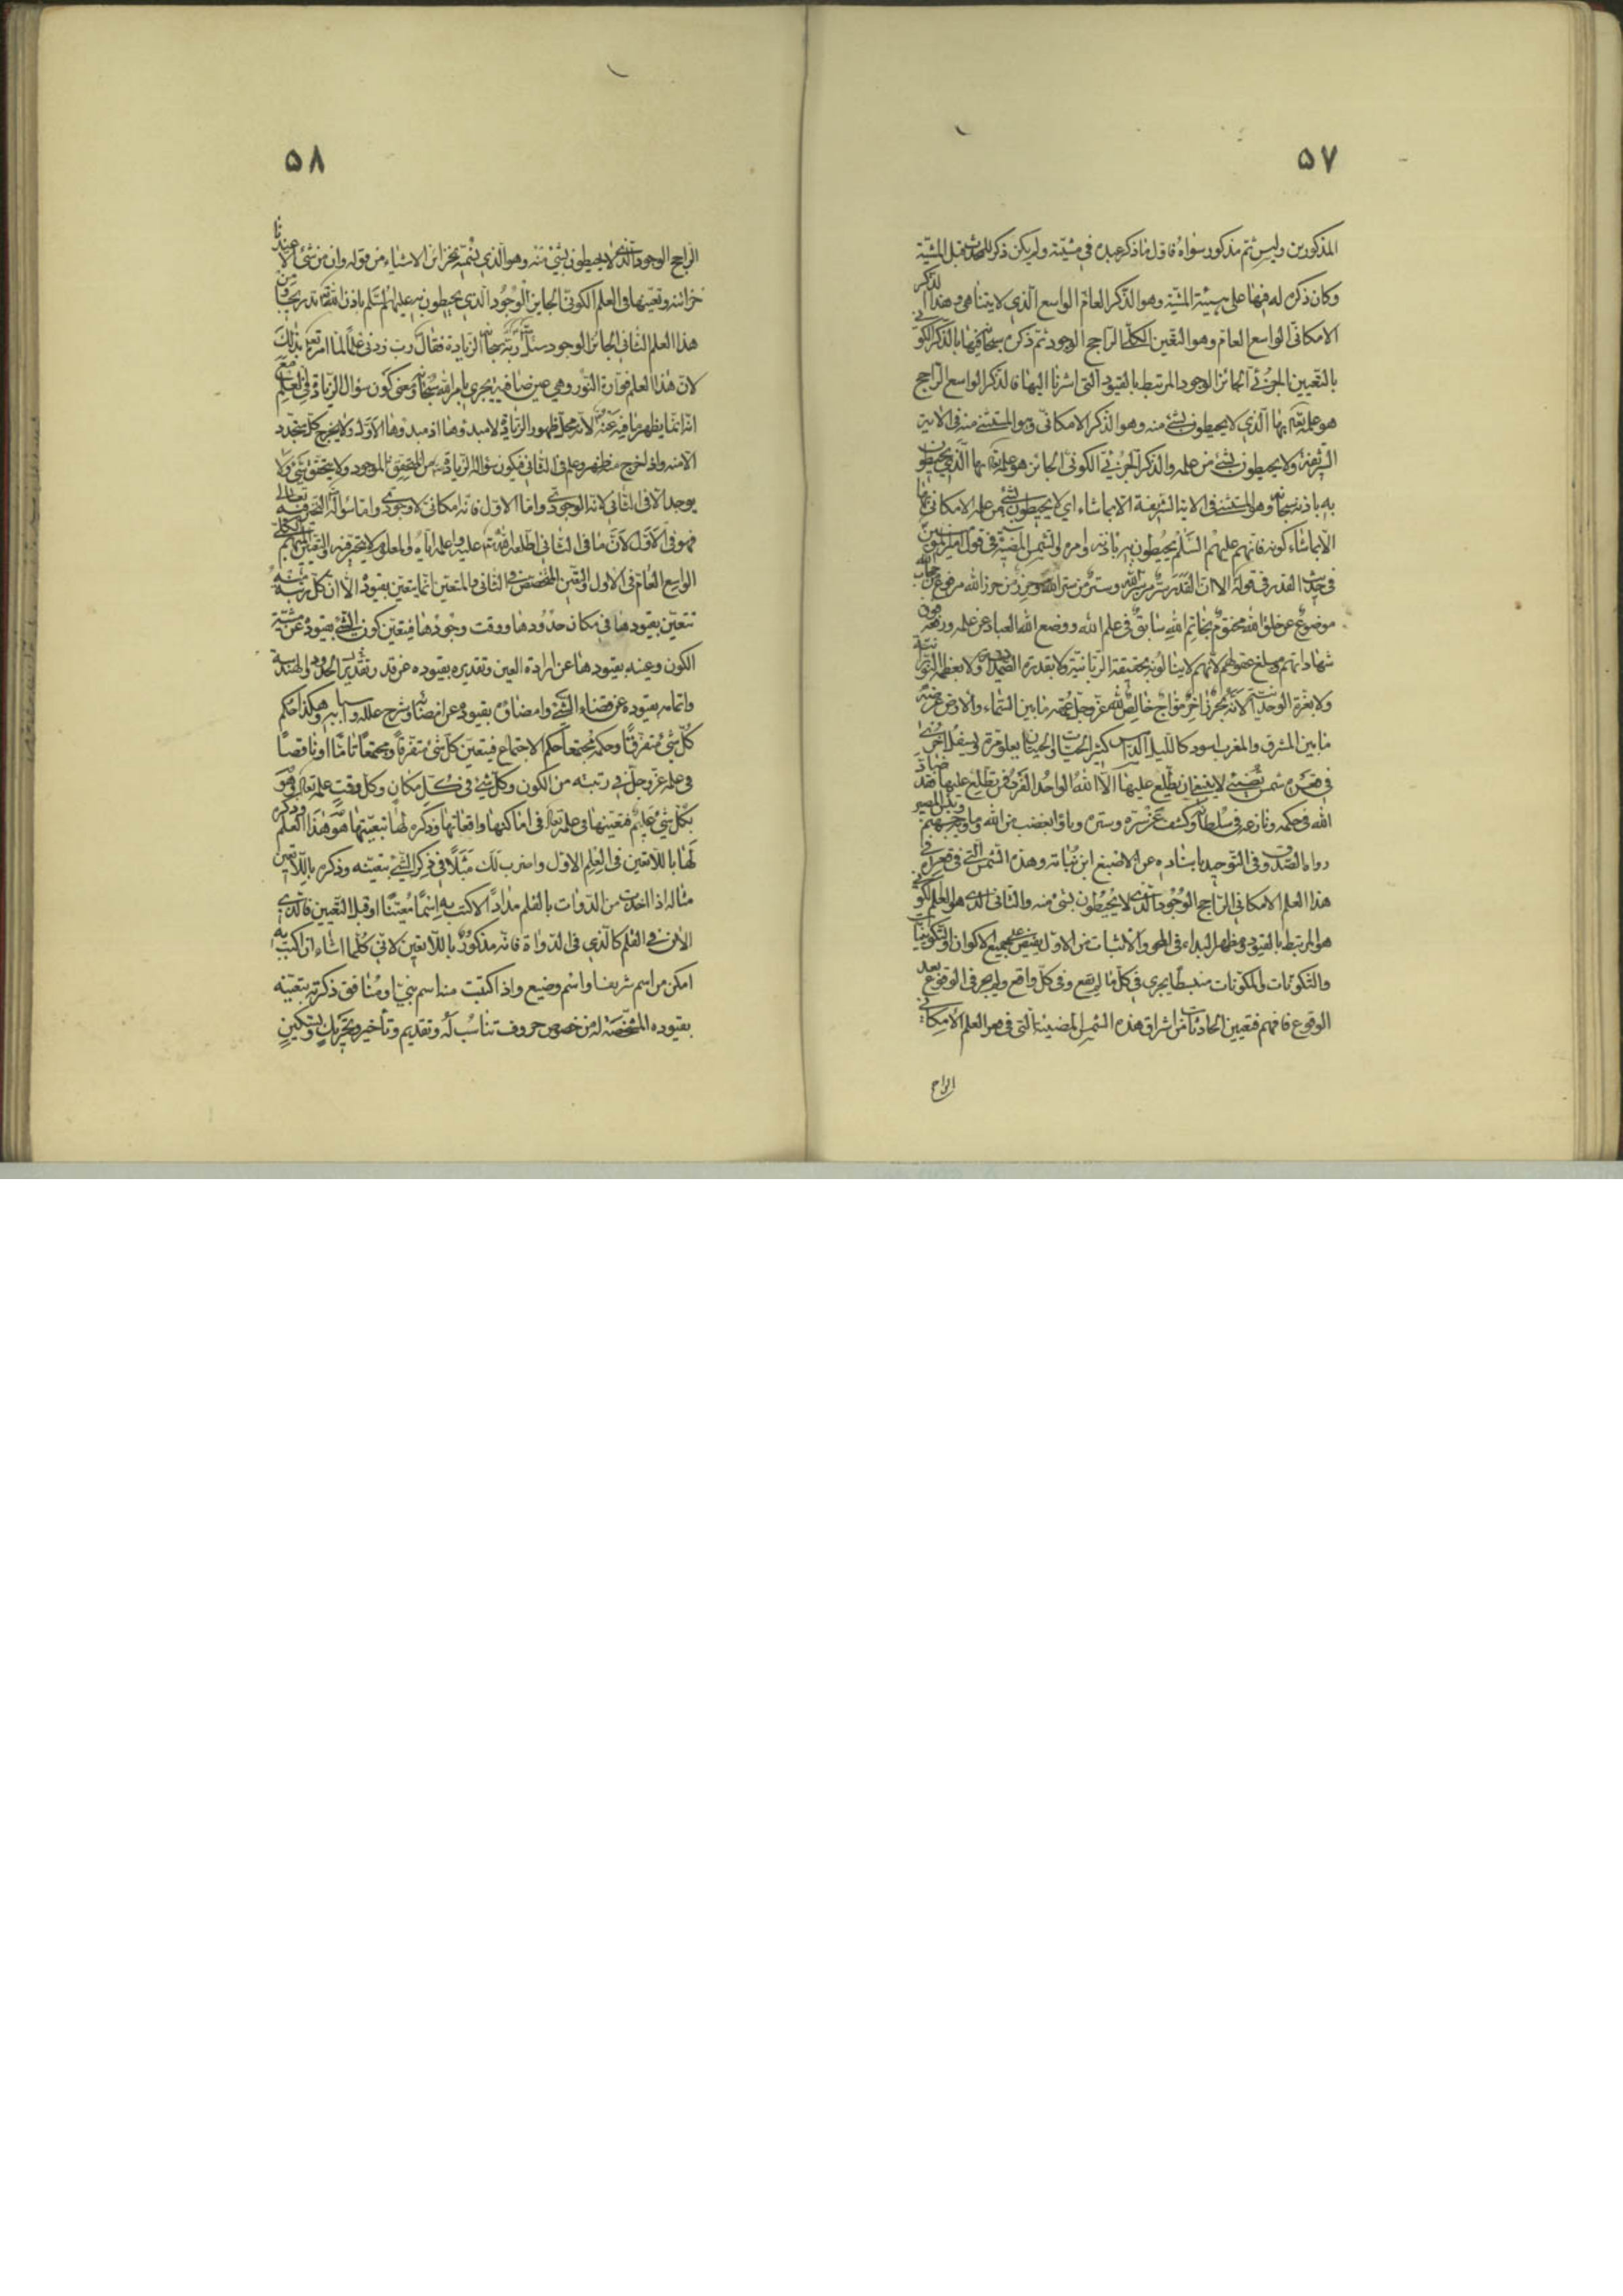 ٥٧
المذكورين وليس ثم مذكور سواه فاول ما ذكر عبده في مشيته ولم يكن ذكر للحدث قبل المشيّة
وكان ذكره له فيها على هيئة المشيّة وهو الذكر العام الواسع الذي لا يتناهى وهذا الذكر
الامكاني الواسع العام وهو التعين الكلي الراجح الوجود ثم ذكره سبحانه فيها بالذكر الكوني
بالتعيين الجزئي الجائز الوجود المرتبط بالقيود التي اشرنا اليها فالذكر الواسع الراجح
هو علمه تعالى بها الذي لا يحيطون بشئ منه وهو الذكر الامكاني وهو المستثنى منه في الاية
الشريفة ولا يحيطون بشئ من علمه والذكر الجزئي الكوني الجائز هو علمه تعالى بها الذي يحيطون
به باذنه سبحانه وهو المستثنى في الاية الشريفة الا بما شاء اي لا يحيطون بشئ من علمه الامكاني بها
الا بما شاء كونه فانهم عليهم السلم يحيطون به باذنه وامره والشمس المضيئة في قول امير المؤمنين
في حديث القدر في قوله الا ان القدر سر من سر الله وستر من ستر الله وحرز من حرز الله مرفوع في حجاب الله
موضوع عن خلق الله مختوم بخاتم الله سابق في علم الله ووضع الله العباد عن علمه ورفعه فوق
شهاداتهم ومبلغ عقولهم لانهم لا ينالونه بحقيقة الربانية ولا بقدرة الصمدانية ولا بعظمة النورانية
ولا بعزة الوحدانية لانه بحر زاخر مواج خالص لله عز وجل عمقه ما بين السماء والارض عرضه
ما بين المشرق والمغرب اسود كالليل الدامس كثير الحيات والحيتان يعلو مرة ويسفل اخرى
في قعره شمس تضئ لا ينبغي ان يطلع عليها الا الله الواحد الفرد فمن تطلع عليها فقد ضاد
الله في حكمه ونازعه في سلطانه وكشف عن سره وستره وباؤ بغضب من الله وماويه جهنم وبئس المصير
رواه الصدوق في التوحيد باسناده عن الاصبغ ابن نباته وهذه الشمس التي في قعره في
هذا العلم الامكاني الراجح الوجود الذي لا يحيطون بشئ منه والثاني الذي هو العلم الكوني
هو المرتبط بالقيود ومظهر البداء في المحو والاثبات من الاول يفيض على جميع الاكوان والتكوينات
والتكونات والمكونات منبسطا يجري في كل ما لم يقع وفي كل واقع ولم يجر في الوقوع بعد
الوقوع فافهم فتعيين الحادثات من اشراق هذه الشمس المضيئة التي في هو العلم الامكاني
الراجح
٥٨
الراجح الوجود الذي لا يحيطون بشئ منه وهو الذي يسميه بخزائن الاشياء من قوله وان من شئ الا عندنا
خزائنه وتعينها في العلم الكوني الجايز الوجود الذي يحيطون به عليهم السلم باذن الله تدريجيا ومن
هذا العلم الثاني الجائز الوجود سئل ربه سبحانه الزيادة فقال رب زدني علما لما امره تعالى بذلك
لان هذا العلم فوارة النور وهي عين صافية يجري بامر الله سبحانه ومعنى كون سؤال الزيادة في العلم مع
انه انما يظهر ما فيه عنه لانه محل ظهور الزيادة لا مبدؤها اذ مبدؤها الاول ولا يخرج كل متجدد
الا منه واذا خرج منه ظهر وعلم في الثاني فيكون سؤاله الزيادة من المتحقق الموجود ولا يتحقق شئ ولا
يوجد الا في الثاني لانه الوجودي واما الاول فانه امكاني لا وجودي واما سؤاله التحير فيه تعالى
فهو في الاول لان ما في الثاني اطلعه الله عليه واعلمه اياه والمعلوم لا يتحير فيه والتعين المبهم الكلي
الواسع العام في الاول والتعين المخصص في الثاني والمتعين انما يتعين بقيوده الا ان كل رتبة منه
تتعين بقيودها في مكان حدودها ووقت وجودها فيتعين كون الشئ بقيوده عن مشيته
الكون وعينه بقيودها عن ارادة العين وتقديره بقيوده عن قدر وتقدير الحدود والهندسة
واتمامه بقيوده عن قضاء الشئ وامضاؤه بقيوده عن امضائه وشرح علله واسبابه وهكذا حكم
كل شئ متفرقا وحكمه مجتمعا حكم الاجتماع فيتعين كل شئ متفرقا ومجتمعا تاما او ناقصا
في علمه عز وجل في رتبته من الكون وكل شئ في كل مكان وكل وقت علمه تعالى وهو
بكل شئ عليم فتعينها في علمه تعالى في اماكنها واوقاتها وذكره لها بتعينها هو هذا العلم وذكره
لها باللاتعين في العلم الاول واضرب لك مثلا في ذكر الشئ بتعينه وذكره باللاتعين
مثاله اذا اخذت من الدوات بالقلم مدادا لاكتب به اسما معينا او قبل التعيين فالذي
الان في القلم كالذي في الدواة فانه مذكور باللاتعين لاني كلما اشاء ان اكتب به
امكن من اسم شريف او اسم وضيع واذا كتبت منه اسم نبي او منافق ذكرته بتعينه
بقيوده المشخصة له من خصوص حروف تناسب له وتقديم وتأخير وتحريك وتسكين